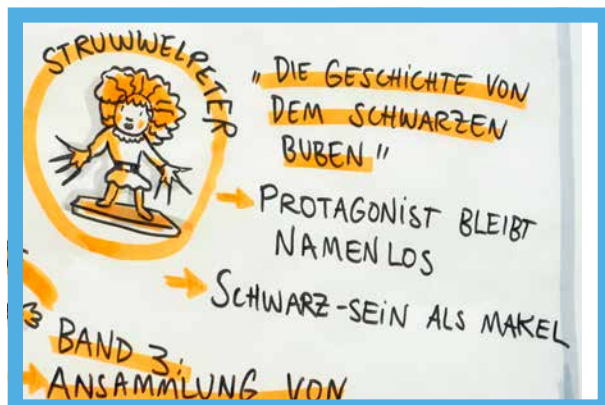 STRUWWELPETER
„DIE GESCHICHTE VON
DEM SCHWARZEN
BUBEN"
PROTAGONIST BLEIBT
NAMENLOS
SCHWARZ-SEIN ALS MAKEL
BAND 3:
ANSAMMLUNG VON